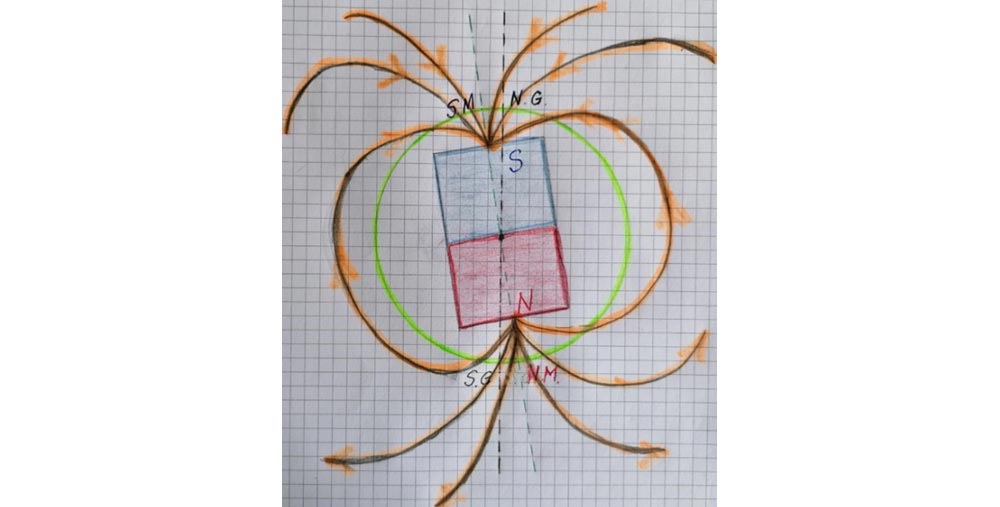 S.M N.G.
S
N
S.G N.M.